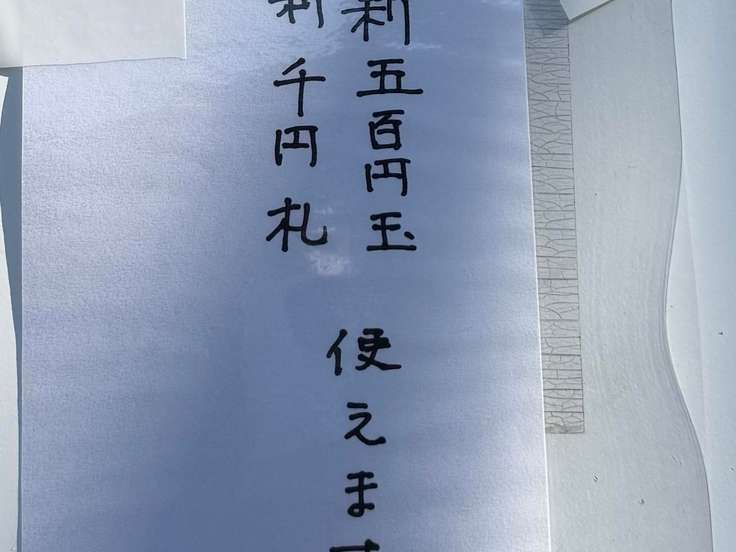 新五百円玉
新千円札
使えます